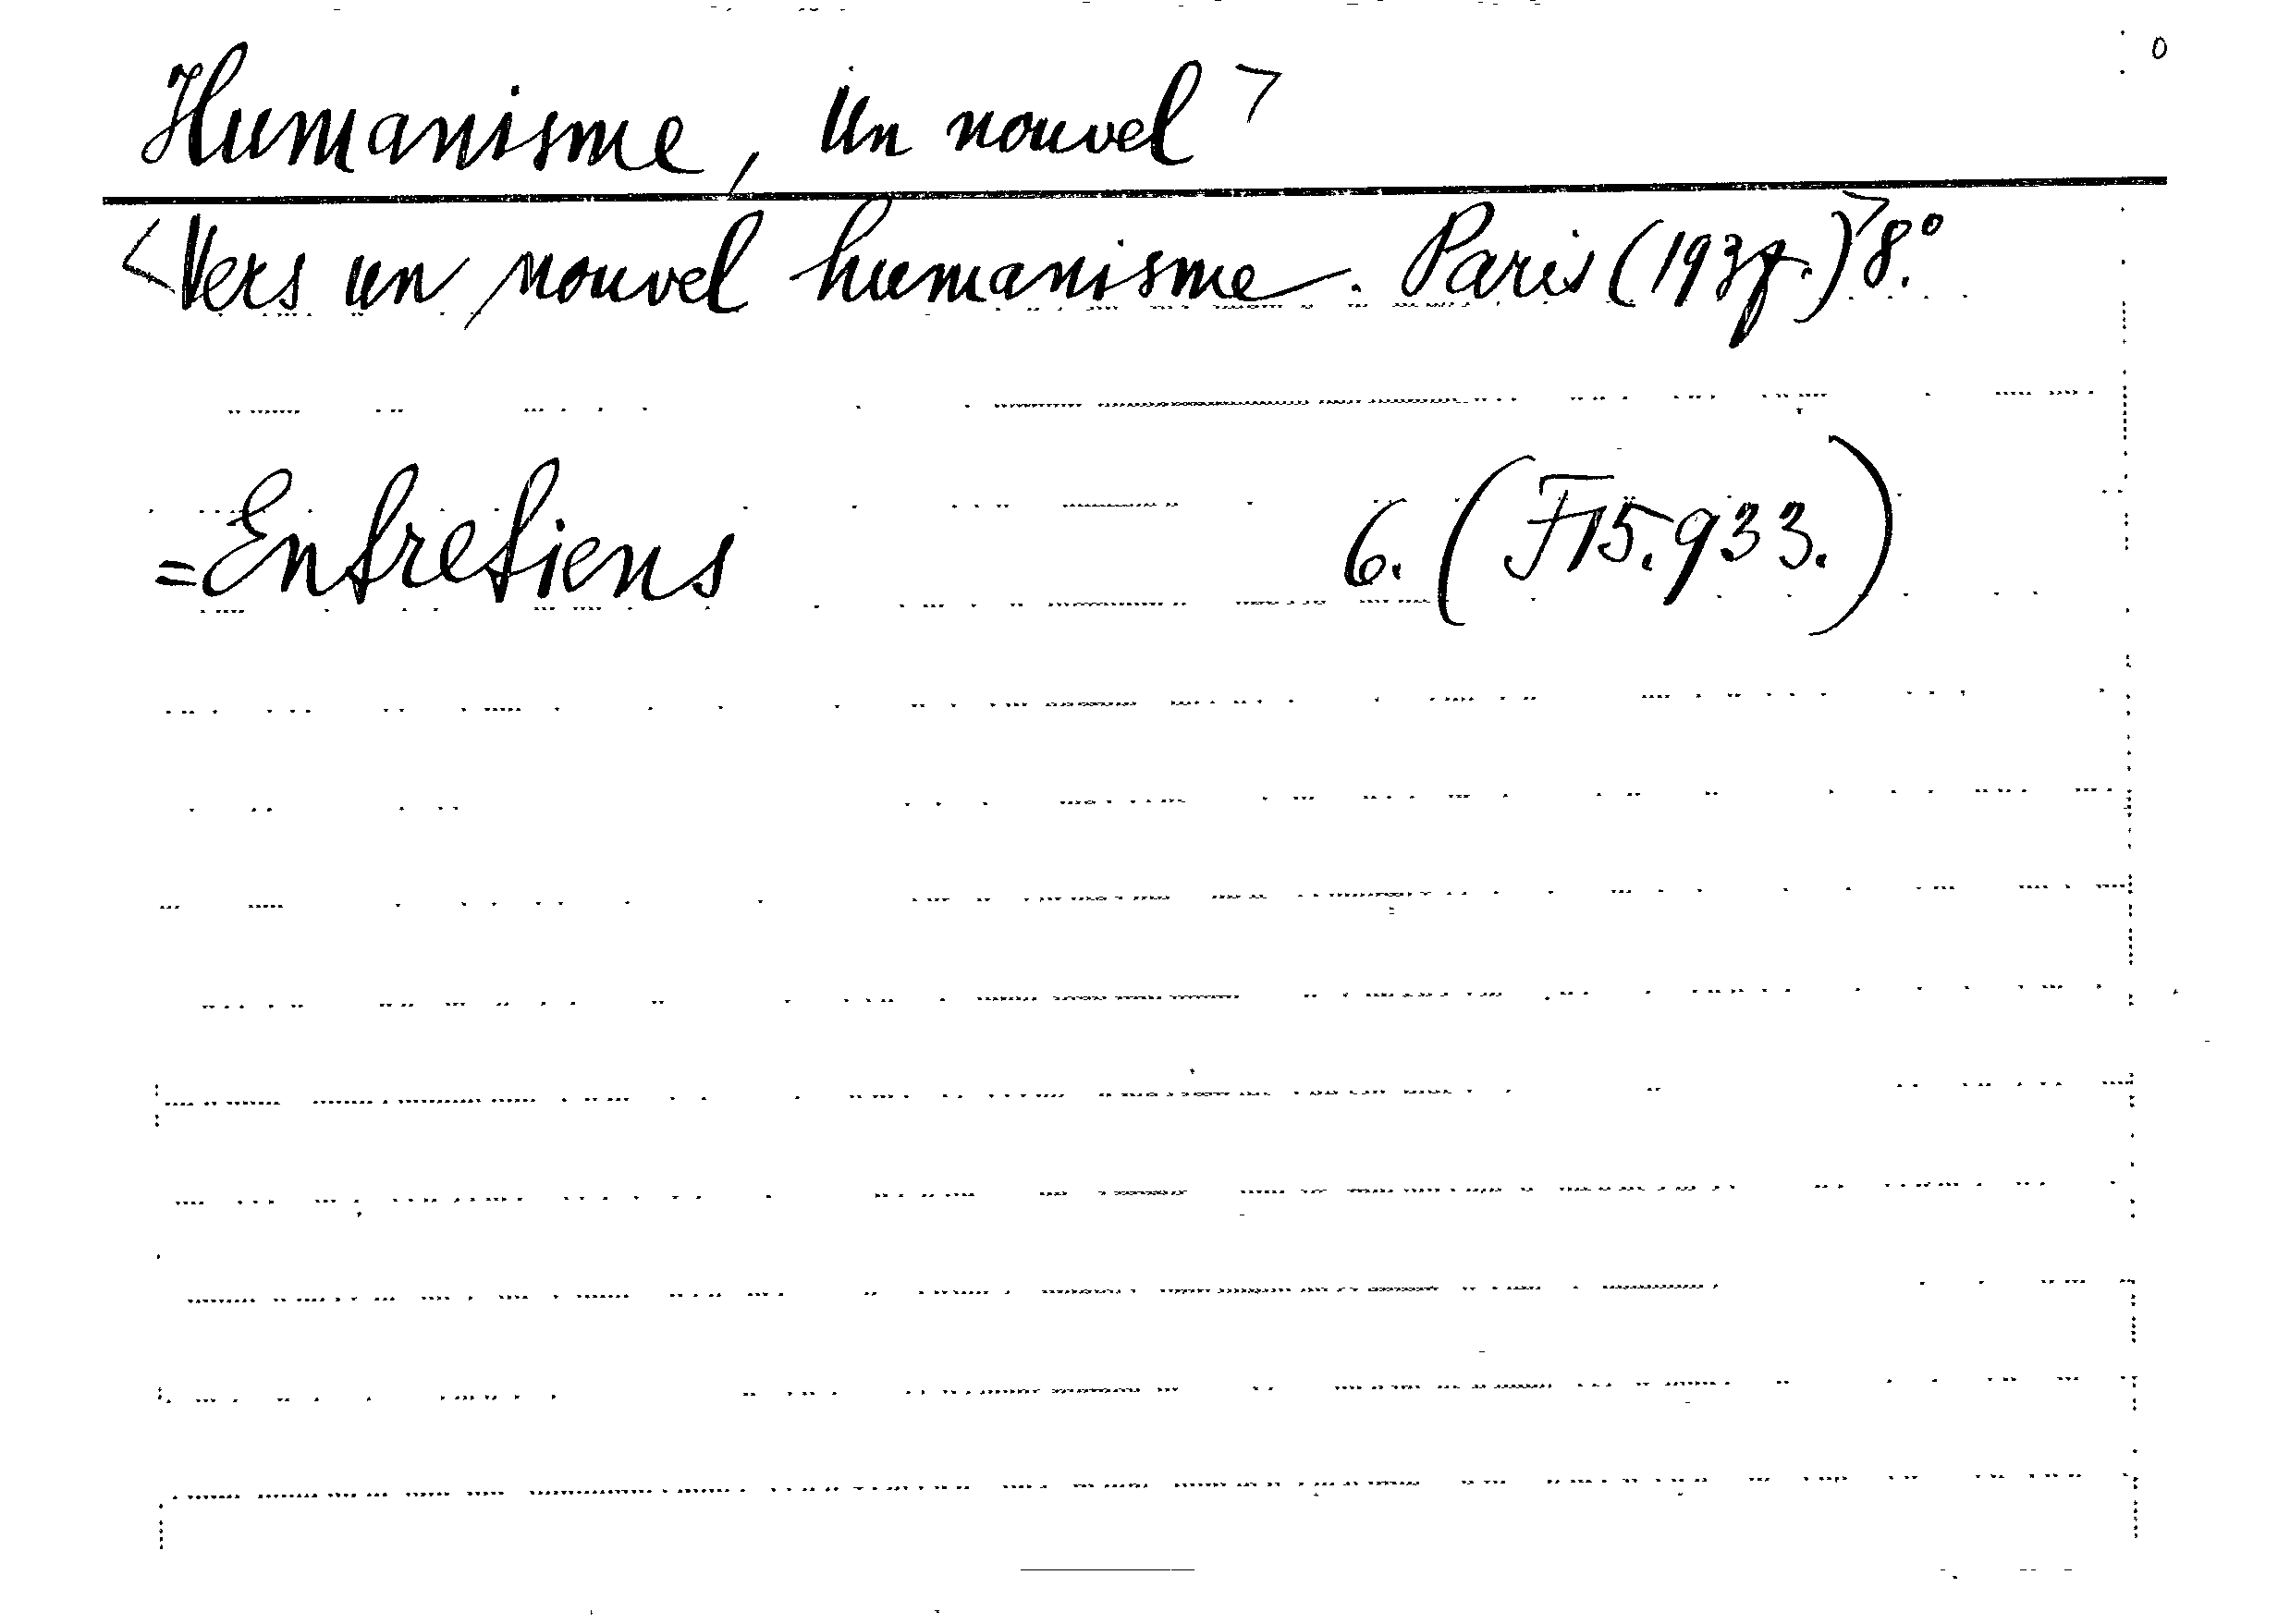 Humanisme, Un nouvel > 0
<Vers un nouvel humanisme. Paris (1937.)> 8.°
=Entretiens 6. (F15.933.)